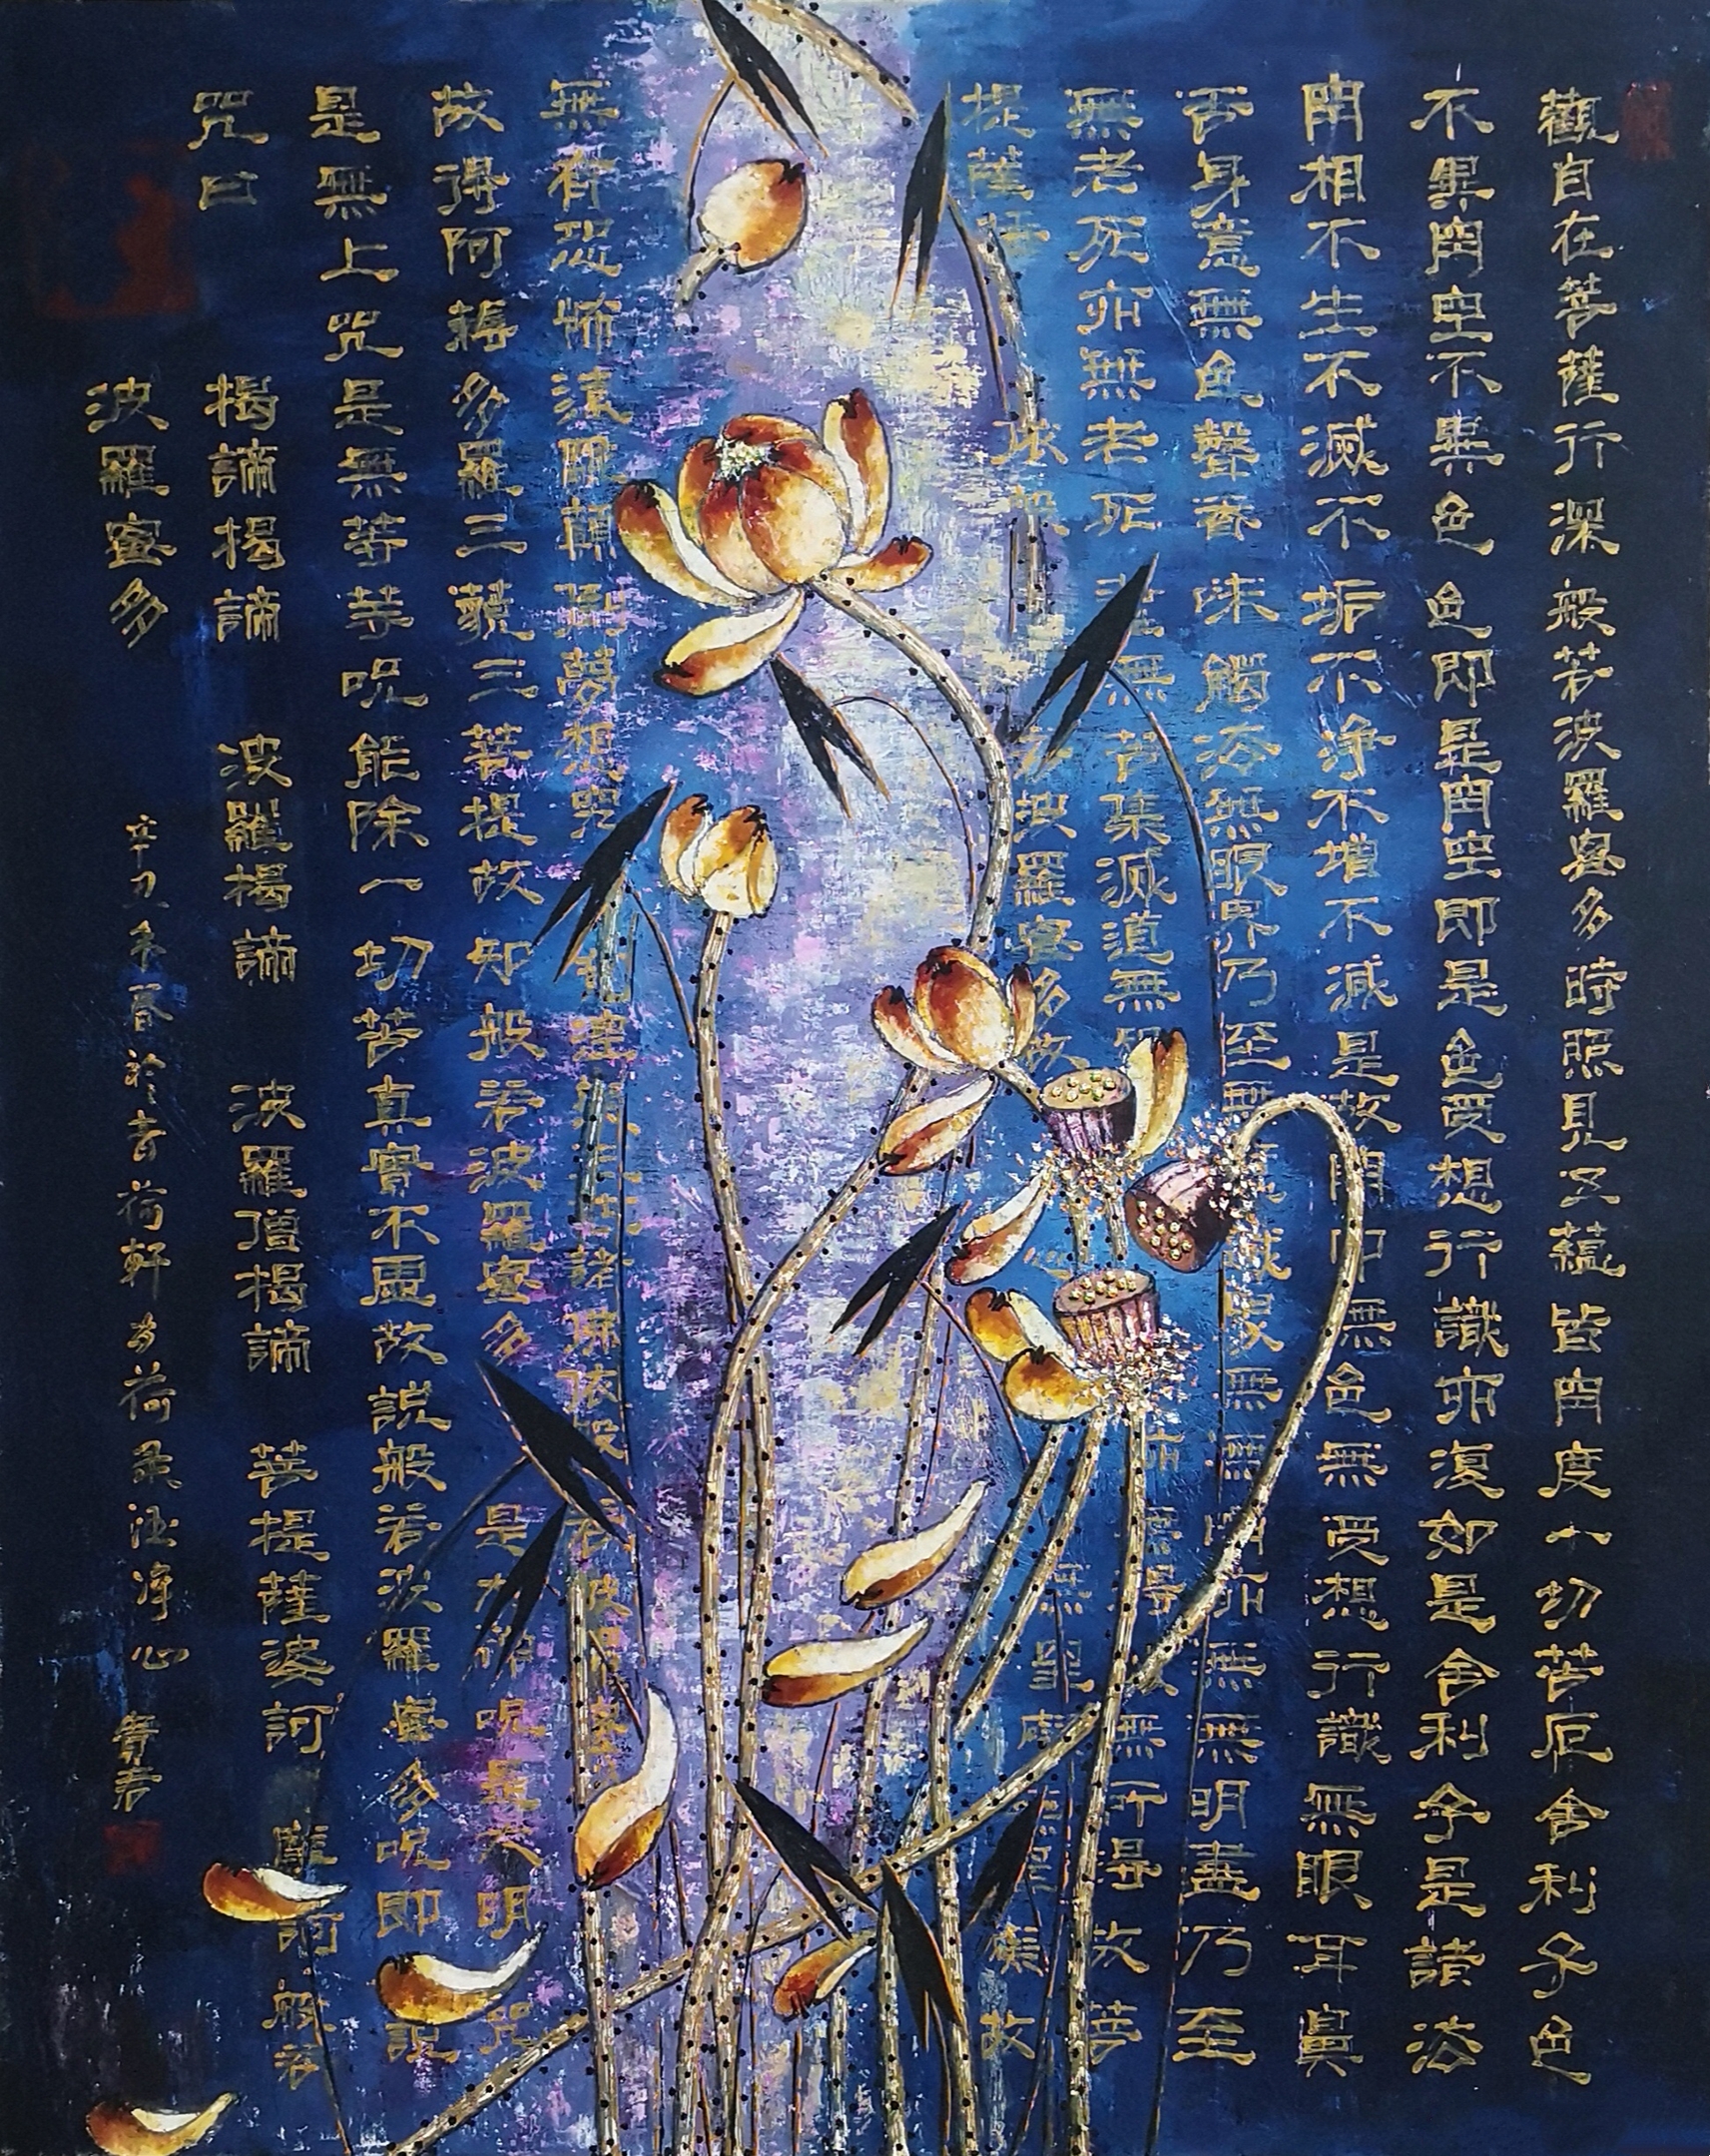 觀自在菩薩行深般若波羅蜜多時照見五蘊皆空度一切苦厄舍利子色
不異空空不異色色即是空空即是色受想行識亦復如是舍利子是諸法
空相不生不滅不垢不淨不增不減是故空中無色無受想行識無眼耳鼻
舌身意無色聲香味觸法無眼界乃至無意識界無無明亦無無明盡乃至
無老死亦無老死盡無苦集滅道無得無所得故菩
提薩依般波羅蜜多故無罣礙無罣礙故
無有恐怖遠離顛倒夢想究涅槃三世諸佛依般若波羅蜜
故得阿耨多羅三藐三菩提故知般若波羅蜜多是大神呪是大明咒
是無上咒是無等等呪能除一切苦真實不虛故説般若波羅蜜多呪即説
咒曰 揭諦揭諦 波羅揭諦 波羅僧揭諦 菩提薩婆訶 摩訶般若
波羅蜜多
辛丑冬於青荷軒為荷淨心 青若